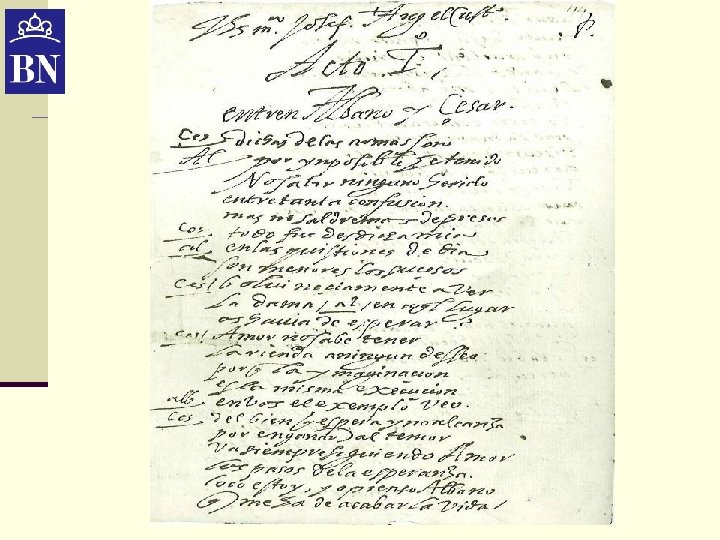 BN
Jhs mª Josef. Angel Cust.
Acto. I.
entren Albano y Cesar.
Ces dichas de las armas son
Al por ynposible e tenido
No salir ninguno herido
entre tanta confusion.
mas no saldremos de presos
Ces. todo fue desdicha mia
al. en las quistiones de dia
son menores los sucesos
Ces bolui neciamente a ver
la dama / al / en lugar
os hauia de esperar?
Ces Amor no sabe tener
la rienda a ningun desseo
porq la ymaginacion
es la misma execucion
alb. en vos el exemplo veo.
Ces. del bien q espera y no alcanza
por engañar al temor
va siempre siguiendo Amor
los pasos de la esperanza.
loco estoy, y pienso Albano
q me ha de acabar la vida